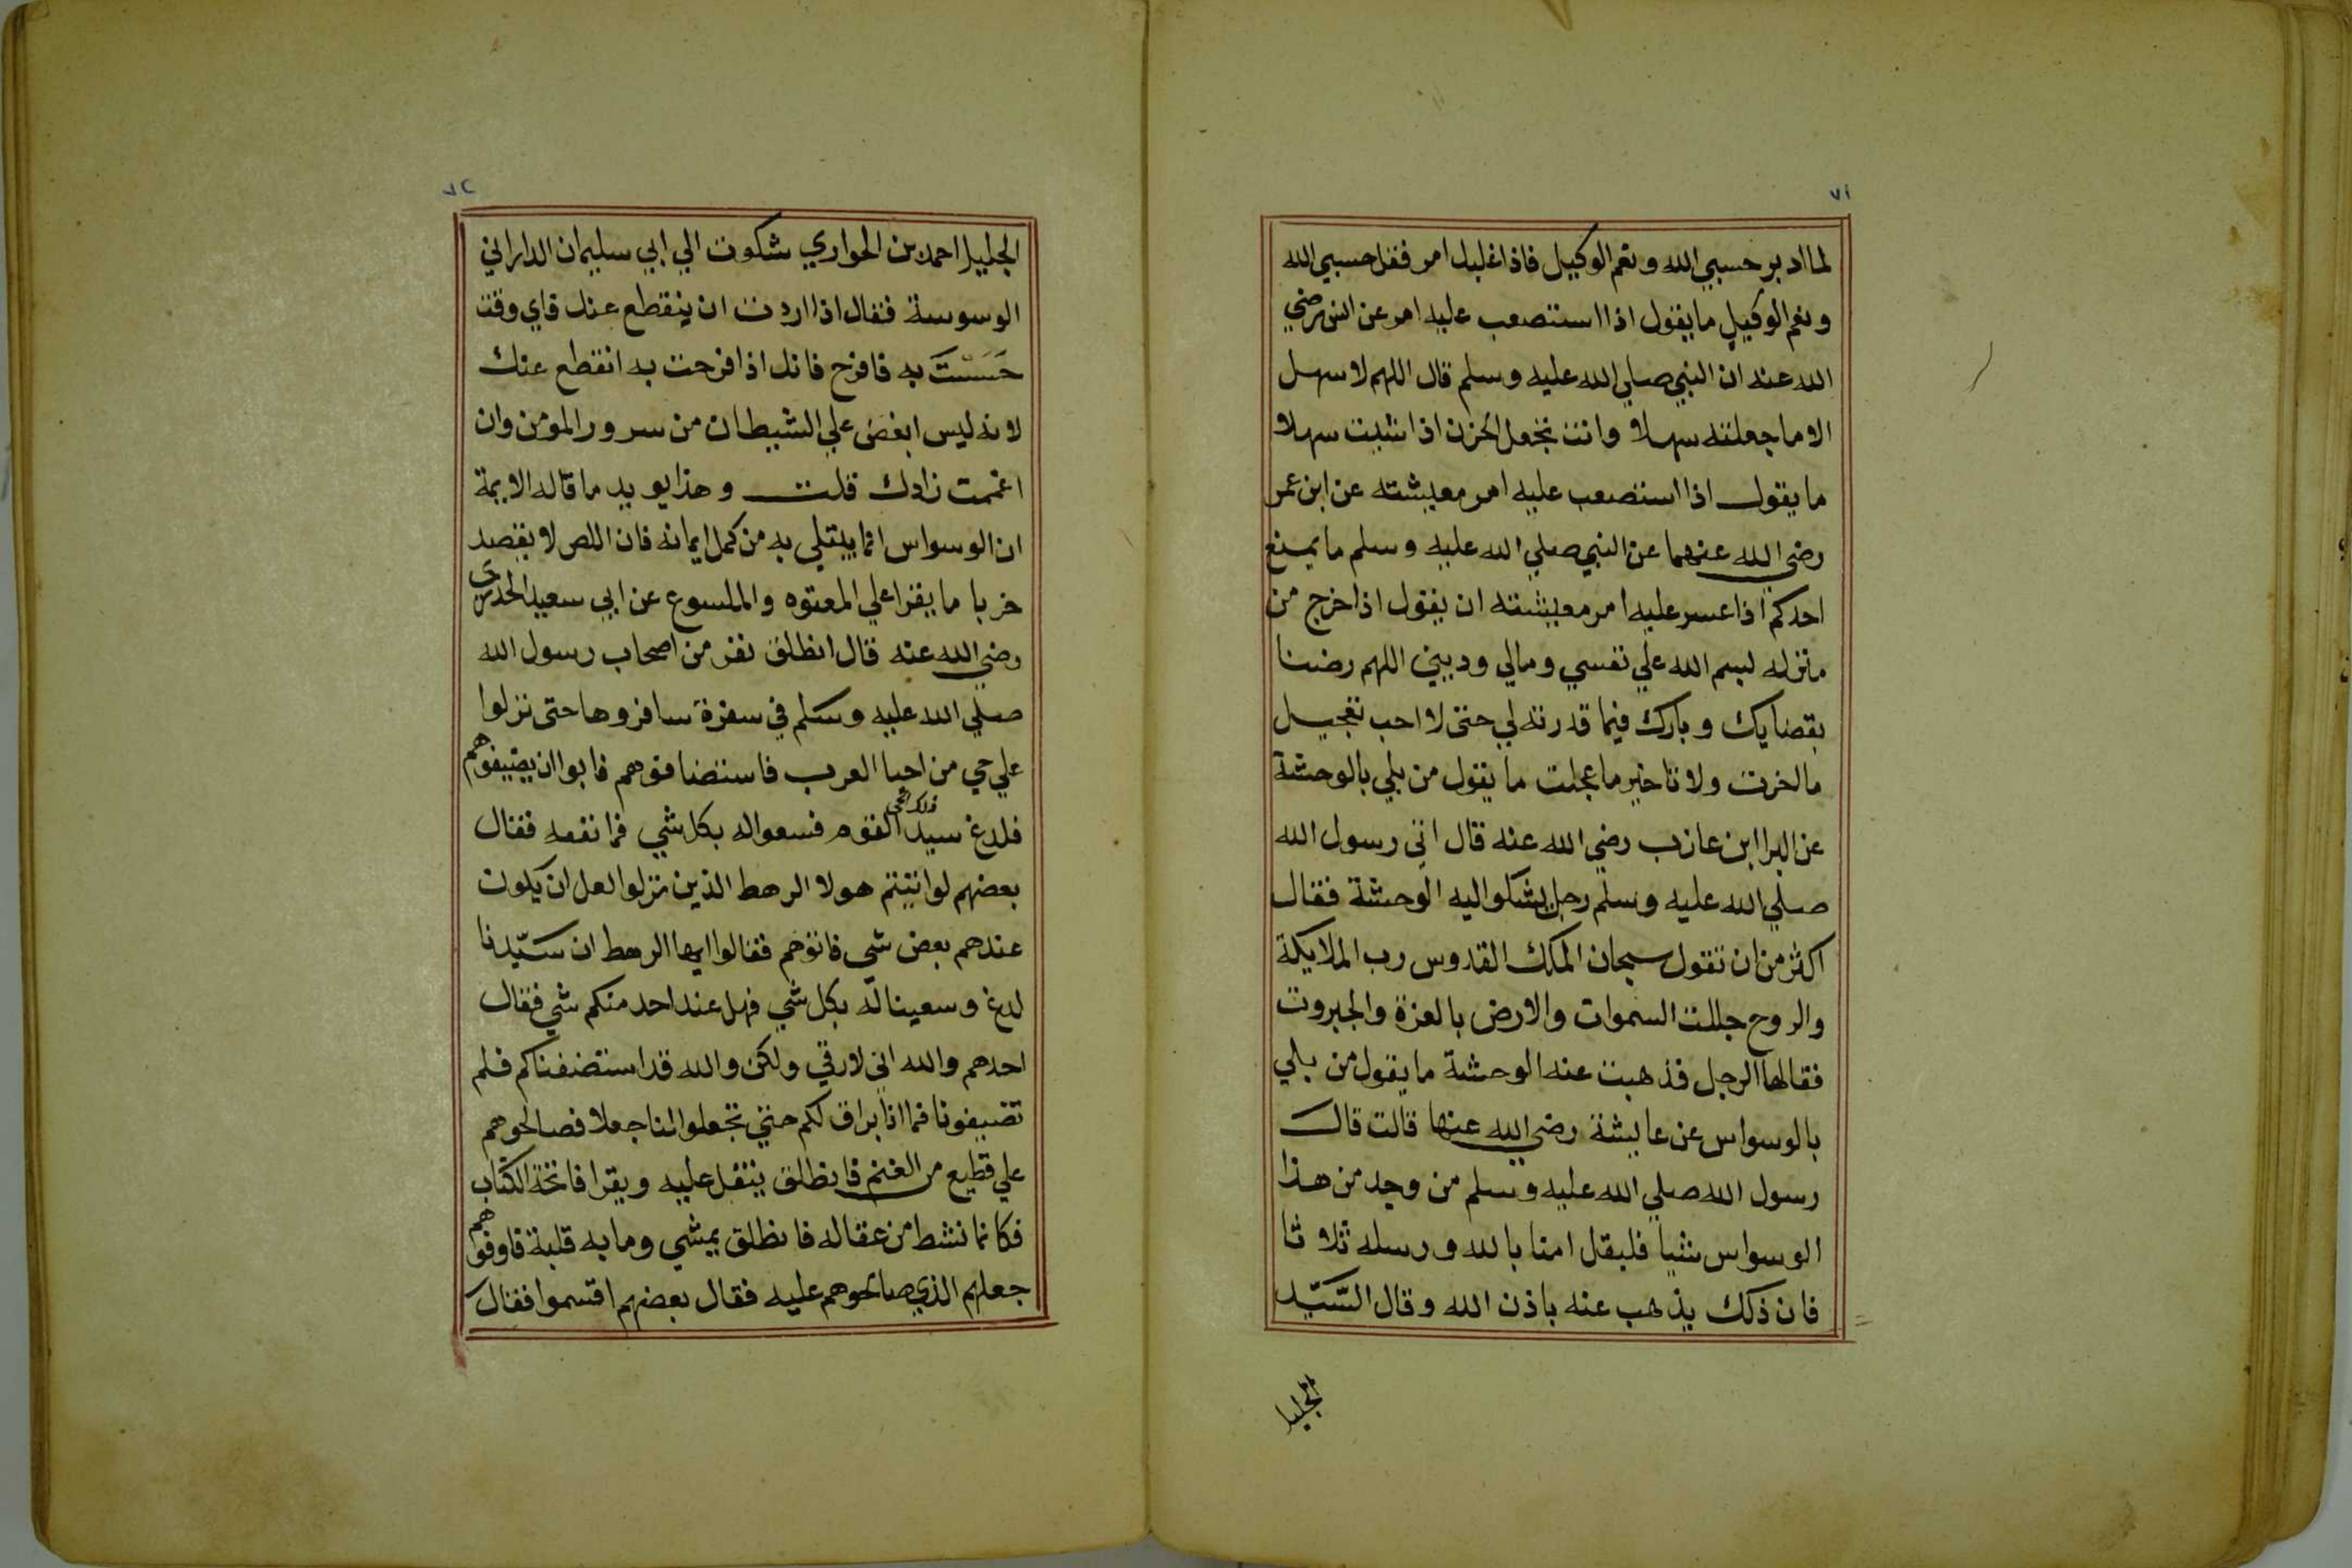 ٧١
لما ادبر حسبي الله ونعم الوكيل فاذا غلبك امر فقل حسبي الله
ونعم الوكيل ما يقول اذا استصعب عليه امر عن انس رضي
الله عنه ان النبي صلي الله عليه وسلم قال اللهم لا سهل
الا ما جعلته سهلا وانت تجعل الحزن اذا شيت سهلا
ما يقول اذا استصعب عليه امر معيشته عن ابن عمر
رضي الله عنهما عن النبي صلي الله عليه وسلم ما يمنع
احدكم اذا عسر عليه امر معيشته ان يقول اذا خرج من
منزله لبسم الله علي نفسي ومالي وديني اللهم رضنا
بقضايك وبارك فيما قدرته لي حتى لا احب تعجيل
ما اخرت ولا تاخير ما عجلت ما يقول من بلي بالوحشة
عن البرا ابن عازب رضي الله عنه قال اتى رسول الله
صلي الله عليه وسلم رجل يشكوا اليه الوحشة فقال
اكثر من ان تقول سبحان الملك القدوس رب الملايكة
والروح جللت السموات والارض بالعزة والجبروت
فقالها الرجل فذهبت عنه الوحشة ما يقول من بلي
بالوسواس عن عايشة رضي الله عنها قالت قال
رسول الله صلي الله عليه وسلم من وجد من هذا
الوسواس شيا فليقل امنا بالله ورسله ثلاثا
فان ذلك يذهب عنه باذن الله وقال السَّيّد
الجليل
٧٢
الجليل احمد بن الحواري شكوت الي ابي سليمان الداراني
الوسوسة فقال اذا اردت ان ينقطع عنك فاي وقت
حَسَسْتَ به فافرح فانك اذا فرحت به انقطع عنك
لانه ليس ابغض علي الشيطان من سرور المؤمن وان
اغتممت زادك قلت وهذا يويد ما قاله الايمة
ان الوسواس انما يبتلي به من كمل ايمانه فان اللص لا يقصد
خربا ما يقرا علي المعتوه والملسوع عن ابي سعيد الخدري
رضي الله عنه قال انطلق نفر من اصحاب رسول الله
صلي الله عليه وسلم في سفرة سافروها حتى نزلوا
علي حي من احيا العرب فاستضافوهم فابوا ان يضيفوهم
فلدغ سيد ذلك الحي القوم فسعوا له بكل شي فما نفعه فقال
بعضهم لو اتيتم هولا الرهط الذين نزلوا لعل ان يكون
عندهم بعض شي فاتوهم فقالوا ايها الرهط ان سَيّدنا
لدغ وسعينا له بكل شي فهل عند احد منكم شي فقال
احدهم والله اني لارقي ولكن والله قد استضفناكم فلم
تضيفونا فما انا براق لكم حتى تجعلوا لنا جعلا فصالحوهم
علي قطيع من الغنم فانطلق يتفل عليه ويقرا فاتحة الكتاب
فكانما نشط من عقاله فانطلق يمشي وما به قلبة فاوفوهم
جعلهم الذي صالحوهم عليه فقال بعضهم اقتسموا فقال